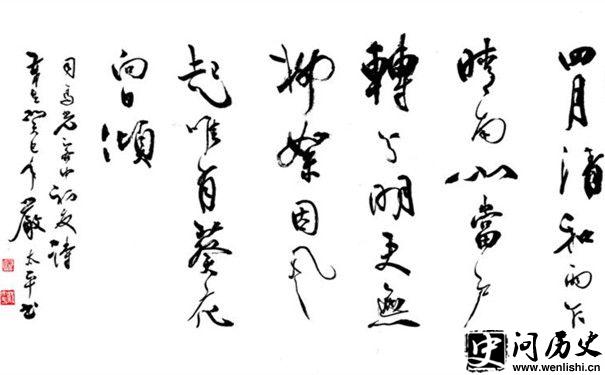 四月清和雨乍
晴南山當户
轉分明更無
柳絮因风
起唯有葵花
向日傾
司馬光客中初夏詩
癸巳年嚴太平书
史 问历史
www.wenlishi.cn